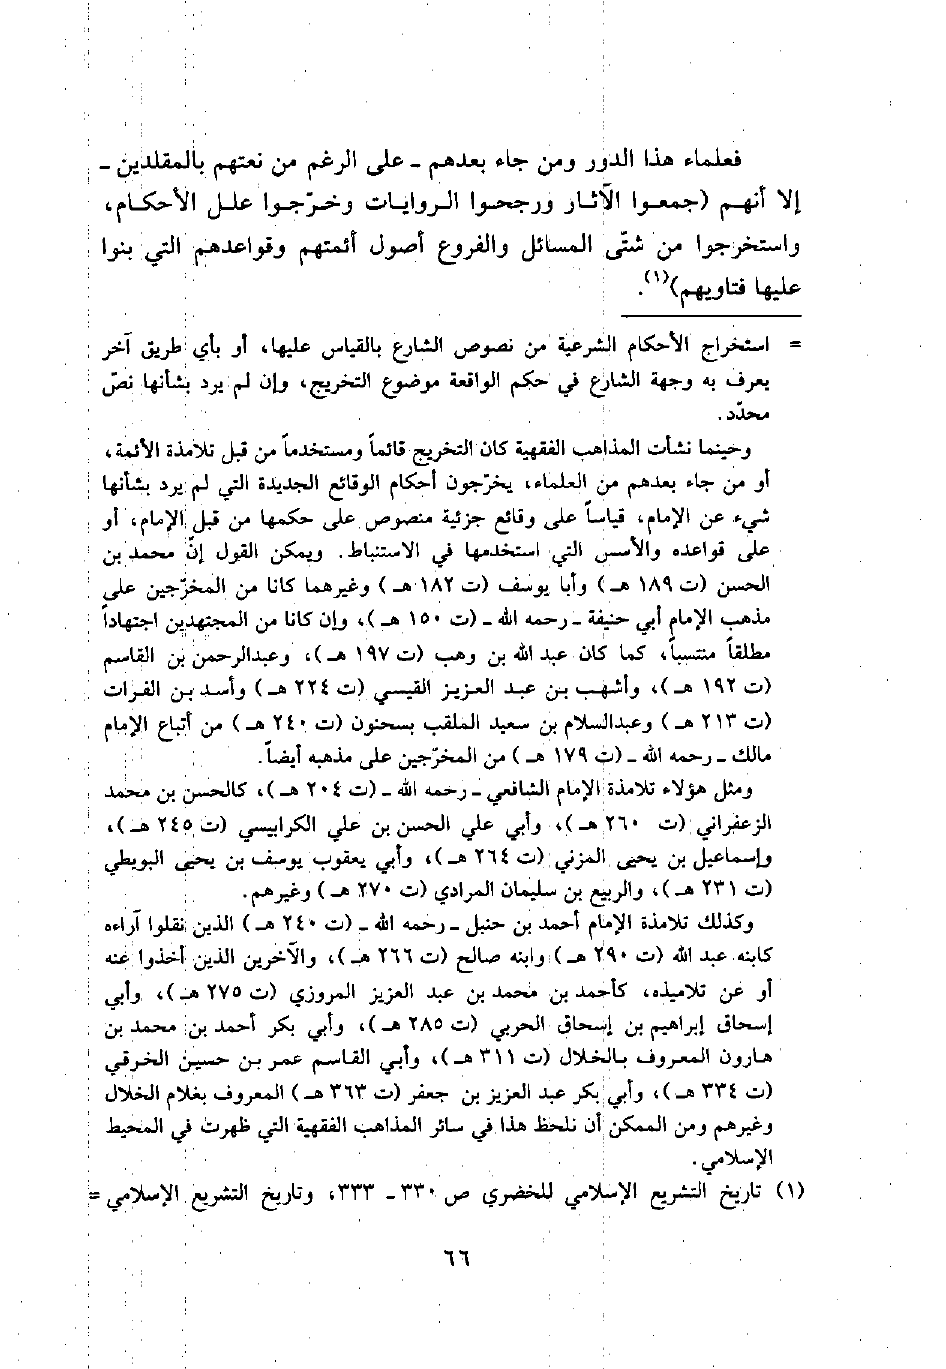 فعلماء هذا الدور ومن جاء بعدهم ـ على الرغم من نعتهم بالمقلدين ـ
إلا أنهم (جمعوا الآثار ورجحوا الروايات وخرّجوا علل الأحكام،
واستخرجوا من شتّى المسائل والفروع أصول أئمتهم وقواعدهم التي بنوا
عليها فتاويهم)(١).
= استخراج الأحكام الشرعية من نصوص الشارع بالقياس عليها، أو بأي طريق آخر
يعرف به وجهة الشارع في حكم الواقعة موضوع التخريج، وإن لم يرد بشأنها نصّ
محدّد.
وحينما نشأت المذاهب الفقهية كان التخريج قائماً ومستخدماً من قبل تلامذة الأئمة،
أو من جاء بعدهم من العلماء، يخرّجون أحكام الوقائع الجديدة التي لم يرد بشأنها
شيء عن الإمام، قياساً على وقائع جزئية منصوص على حكمها من قبل الإمام، أو
على قواعده والأسس التي استخدمها في الاستنباط. ويمكن القول إنّ محمد بن
الحسن (ت ١٨٩ هـ) وأبا يوسف (ت ١٨٢ هـ) وغيرهما كانا من المخرّجين على
مذهب الإمام أبي حنيفة ـ رحمه الله ـ (ت ١٥٠ هـ)، وإن كانا من المجتهدين اجتهاداً
مطلقاً منتسباً، كما كان عبد الله بن وهب (ت ١٩٧ هـ)، وعبدالرحمن بن القاسم
(ت ١٩٢ هـ)، وأشهب بن عبد العزيز القيسي (ت ٢٢٤ هـ) وأسد بن الفرات
(ت ٢١٣ هـ) وعبدالسلام بن سعيد الملقب بسحنون (ت ٢٤٠ هـ) من أتباع الإمام
مالك ـ رحمه الله ـ (ت ١٧٩ هـ) من المخرّجين على مذهبه أيضاً.
ومثل هؤلاء تلامذة الإمام الشافعي ـ رحمه الله ـ (ت ٢٠٤ هـ)، كالحسن بن محمد
الزعفراني (ت ٢٦٠ هـ)، وأبي علي الحسن بن علي الكرابيسي (ت ٢٤٥ هـ)،
وإسماعيل بن يحيى المزني (ت ٢٦٤ هـ)، وأبي يعقوب يوسف بن يحيى البويطي
(ت ٢٣١ هـ)، والربيع بن سليمان المرادي (ت ٢٧٠ هـ) وغيرهم.
وكذلك تلامذة الإمام أحمد بن حنبل ـ رحمه الله ـ (ت ٢٤٠ هـ) الذين نقلوا آراءه
كابنه عبد الله (ت ٢٩٠ هـ) وابنه صالح (ت ٢٦٦ هـ)، والآخرين الذين أخذوا عنه
أو عن تلاميذه، كأحمد بن محمد بن عبد العزيز المروزي (ت ٢٧٥ هـ)، وأبي
إسحاق إبراهيم بن إسحاق الحربي (ت ٢٨٥ هـ)، وأبي بكر أحمد بن محمد بن
هارون المعروف بالخلال (ت ٣١١ هـ)، وأبي القاسم عمر بن حسين الخرقي
(ت ٣٣٤ هـ)، وأبي بكر عبد العزيز بن جعفر (ت ٣٦٣ هـ) المعروف بغلام الخلال
وغيرهم ومن الممكن أن نلحظ هذا في سائر المذاهب الفقهية التي ظهرت في المحيط
الإسلامي.
(١) تاريخ التشريع الإسلامي للخضري ص ٣٣٠ ـ ٣٣٣، وتاريخ التشريع الإسلامي =
٦٦